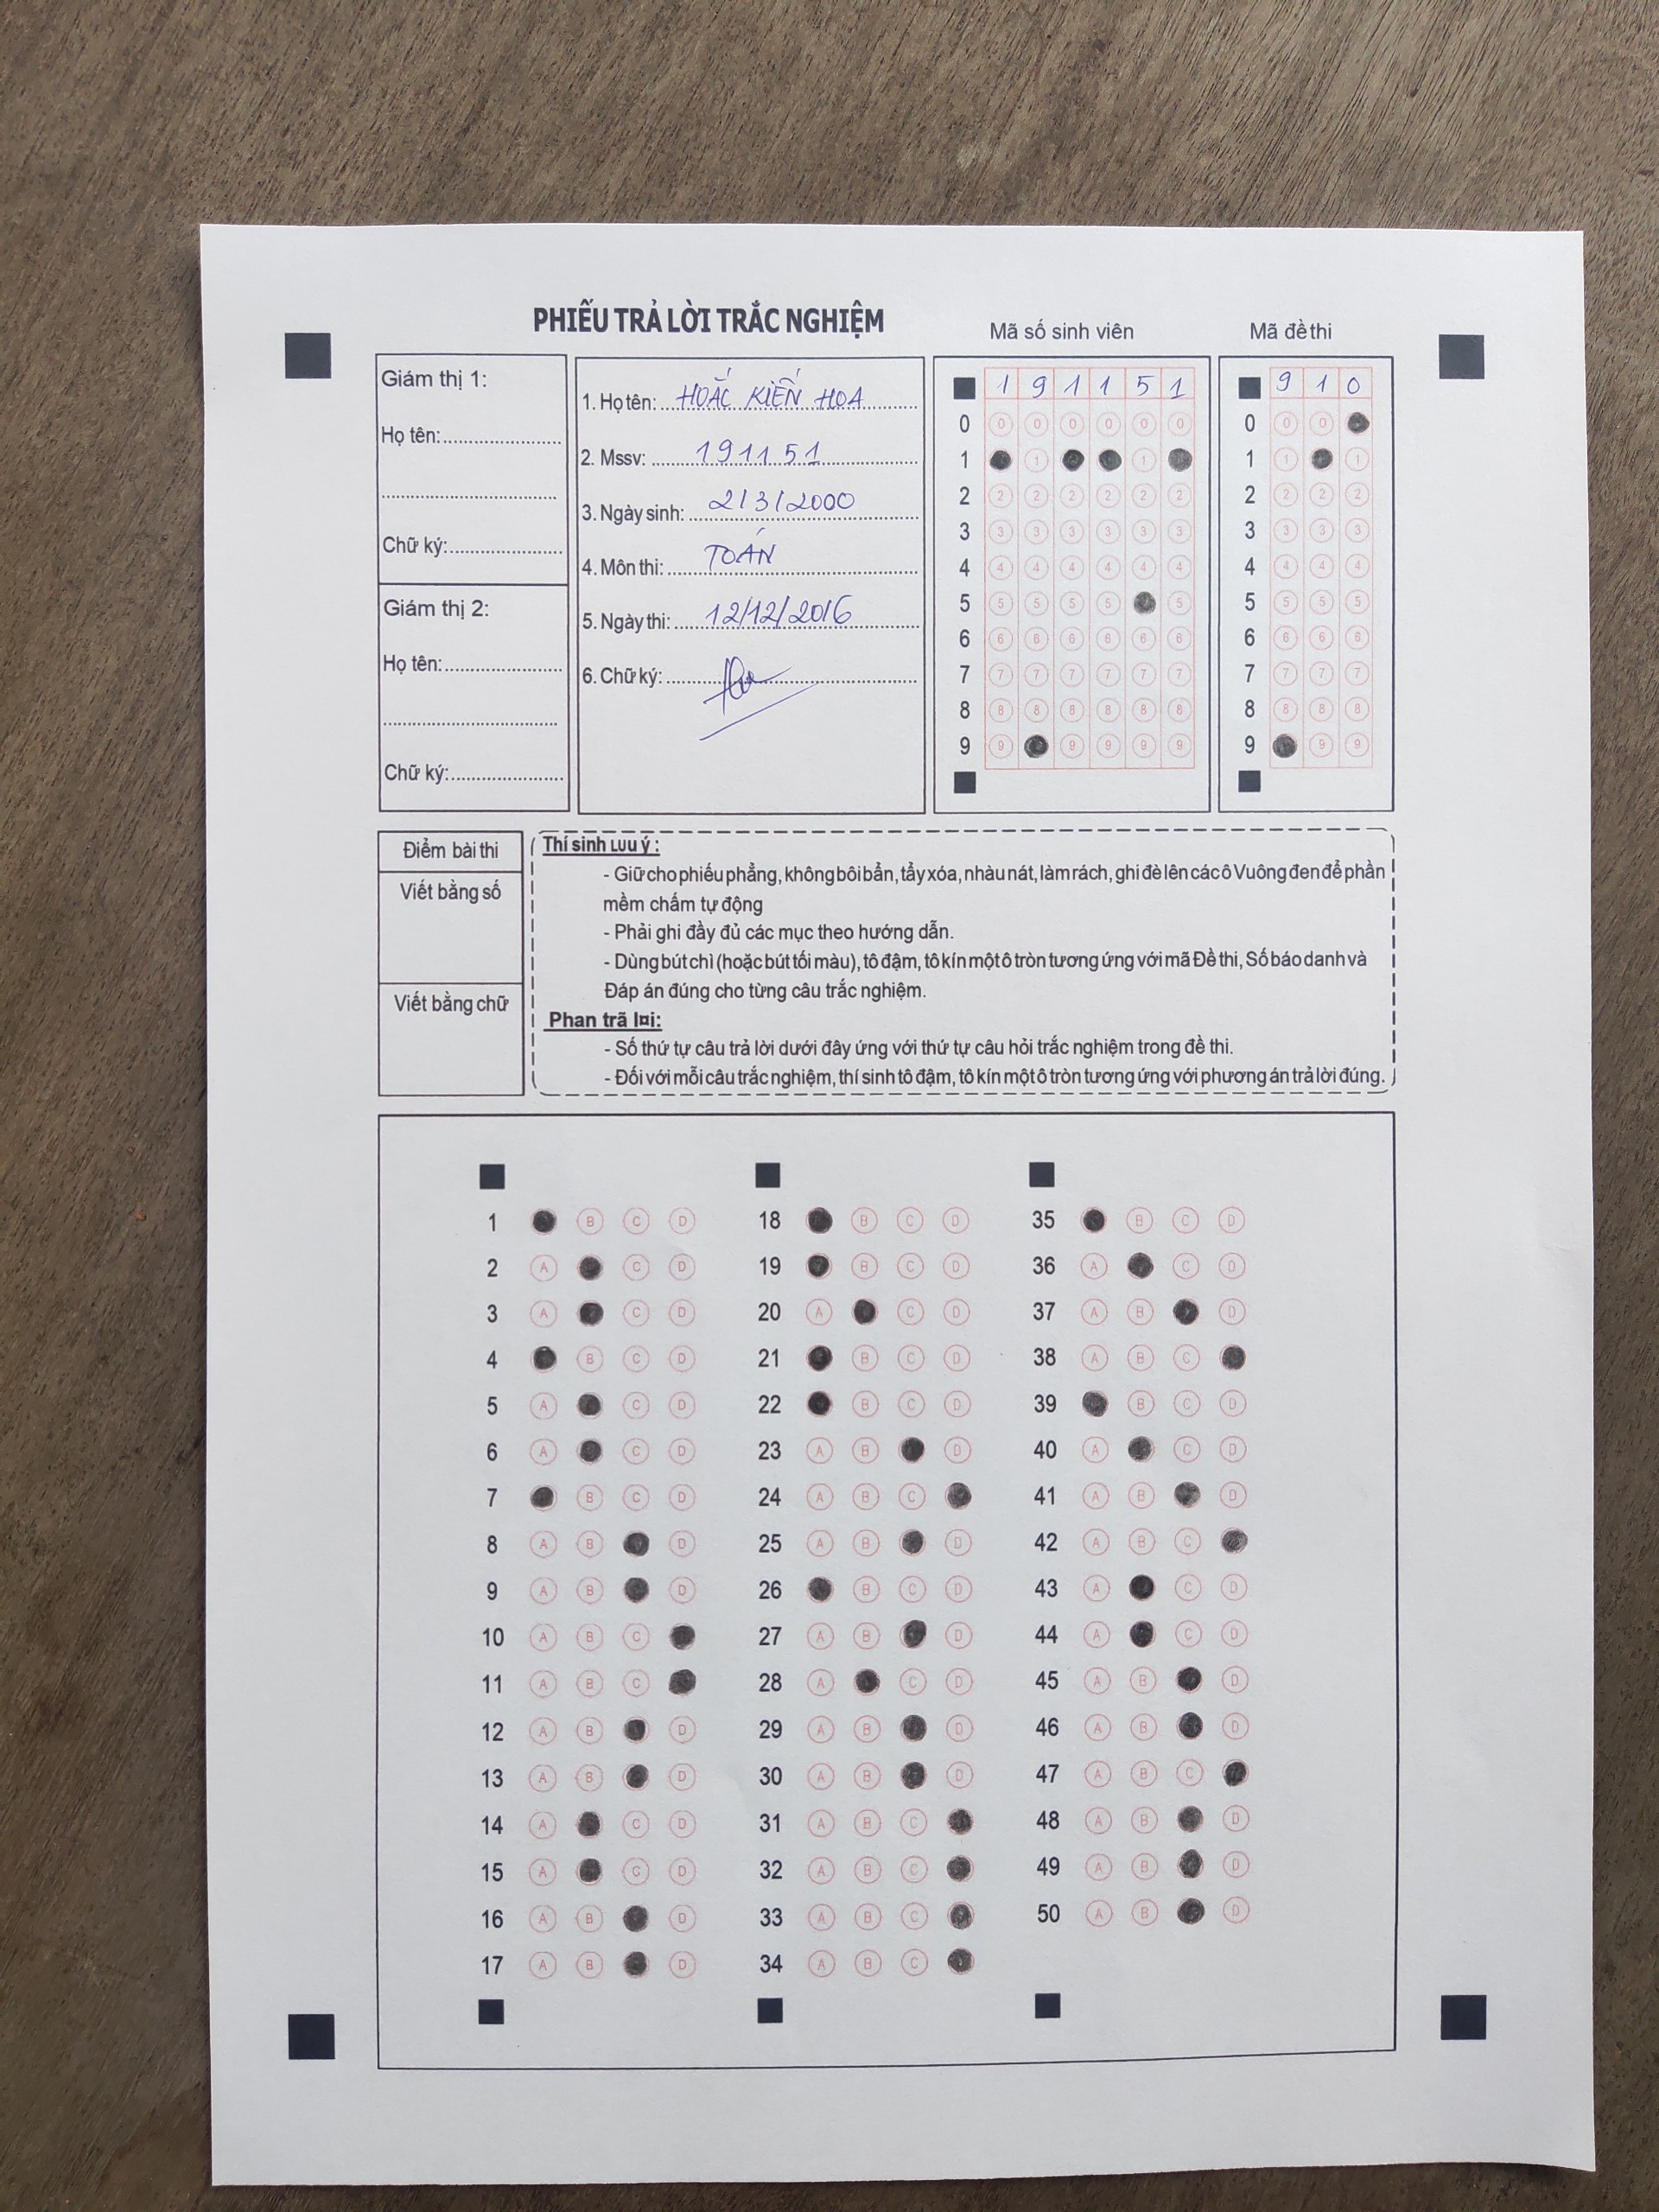 PHIẾU TRẢ LỜI TRẮC NGHIỆM
Mã số sinh viên
Mã đề thi
Giám thị 1:
Họ tên:
Chữ ký:
Giám thị 2:
Họ tên:
Chữ ký:
1. Họ tên: HOẮC KIẾN HOA
2. Mssv: 191151
3. Ngày sinh: 2/3/2000
4. Môn thi: TOÁN
5. Ngày thi: 12/12/2016
6. Chữ ký:
1 9 1 1 5 1
0 0 0 0 0 0 0
1 1 1
2 2 2 2 2 2 2
3 3 3 3 3 3 3
4 4 4 4 4 4 4
5 5 5 5 5 5
6 6 6 6 6 6 6
7 7 7 7 7 7 7
8 8 8 8 8 8 8
9 9 9 9 9 9
9 1 0
0 0 0
1 1 1
2 2 2 2
3 3 3 3
4 4 4 4
5 5 5 5
6 6 6 6
7 7 7 7
8 8 8 8
9 9 9
Điểm bài thi
Viết bằng số
Viết bằng chữ
Thí sinh LƯU ý :
- Giữ cho phiếu phẳng, không bôi bẩn, tẩy xóa, nhàu nát, làm rách, ghi đè lên các ô Vuông đen để phần
mềm chấm tự động
- Phải ghi đầy đủ các mục theo hướng dẫn.
- Dùng bút chì (hoặc bút tối màu), tô đậm, tô kín một ô tròn tương ứng với mã Đề thi, Số báo danh và
Đáp án đúng cho từng câu trắc nghiệm.
Phan trã l¤i:
- Số thứ tự câu trả lời dưới đây ứng với thứ tự câu hỏi trắc nghiệm trong đề thi.
- Đối với mỗi câu trắc nghiệm, thí sinh tô đậm, tô kín một ô tròn tương ứng với phương án trả lời đúng.
1 B C D
2 A C D
3 A C D
4 B C D
5 A C D
6 A C D
7 B C D
8 A B D
9 A B D
10 A B C
11 A B C
12 A B D
13 A B D
14 A C D
15 A C D
16 A B D
17 A B D
18 B C D
19 B C D
20 A C D
21 B C D
22 B C D
23 A B D
24 A B C
25 A B D
26 B C D
27 A B D
28 A C D
29 A B D
30 A B D
31 A B C
32 A B C
33 A B C
34 A B C
35 B C D
36 A C D
37 A B D
38 A B C
39 B C D
40 A C D
41 A B D
42 A B C
43 A C D
44 A C D
45 A B D
46 A B D
47 A B C
48 A B D
49 A B D
50 A B D